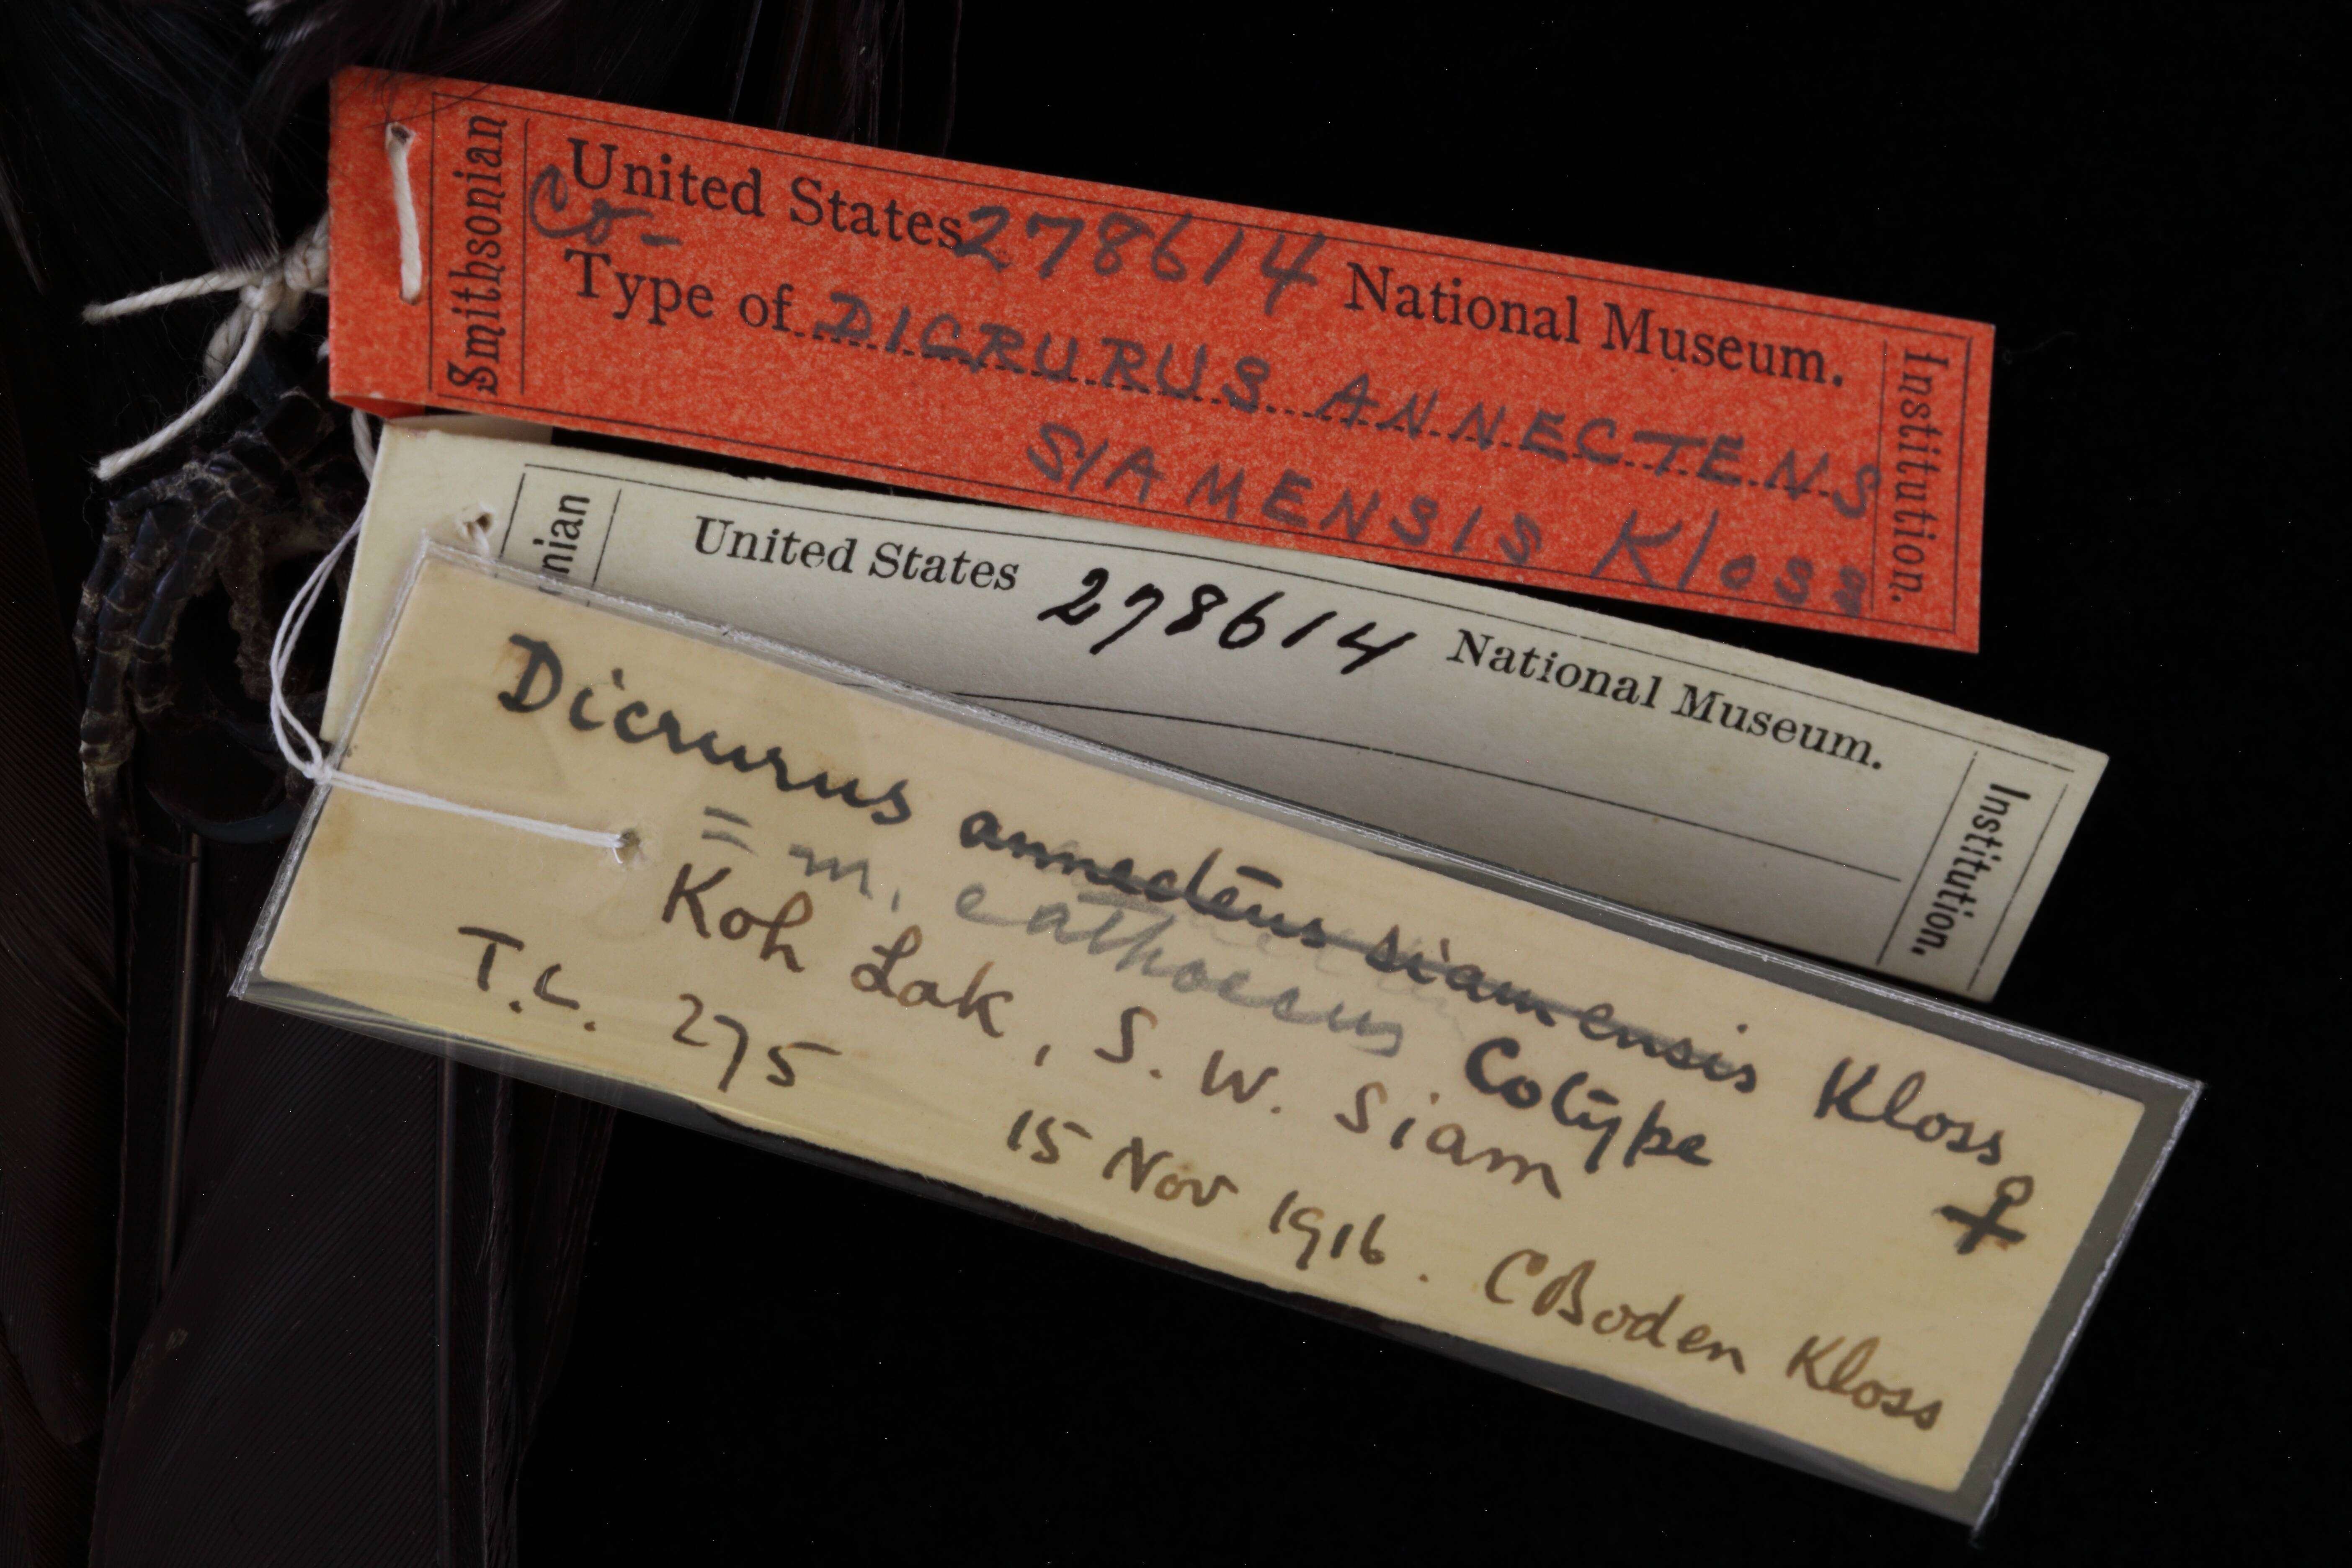 Smithsonian
United States 278614 National Museum.
Co-
Type of DICRURUS ANNECTENS
SIAMENSIS Kloss
Institution.
nian
United States 278614 National Museum.
Institution.
Dicrurus annectens siamensis Kloss
= m. cathoecus Cotype
Koh Lak, S. W. Siam ♀
T.C. 275
15 Nov 1916. C Boden Kloss